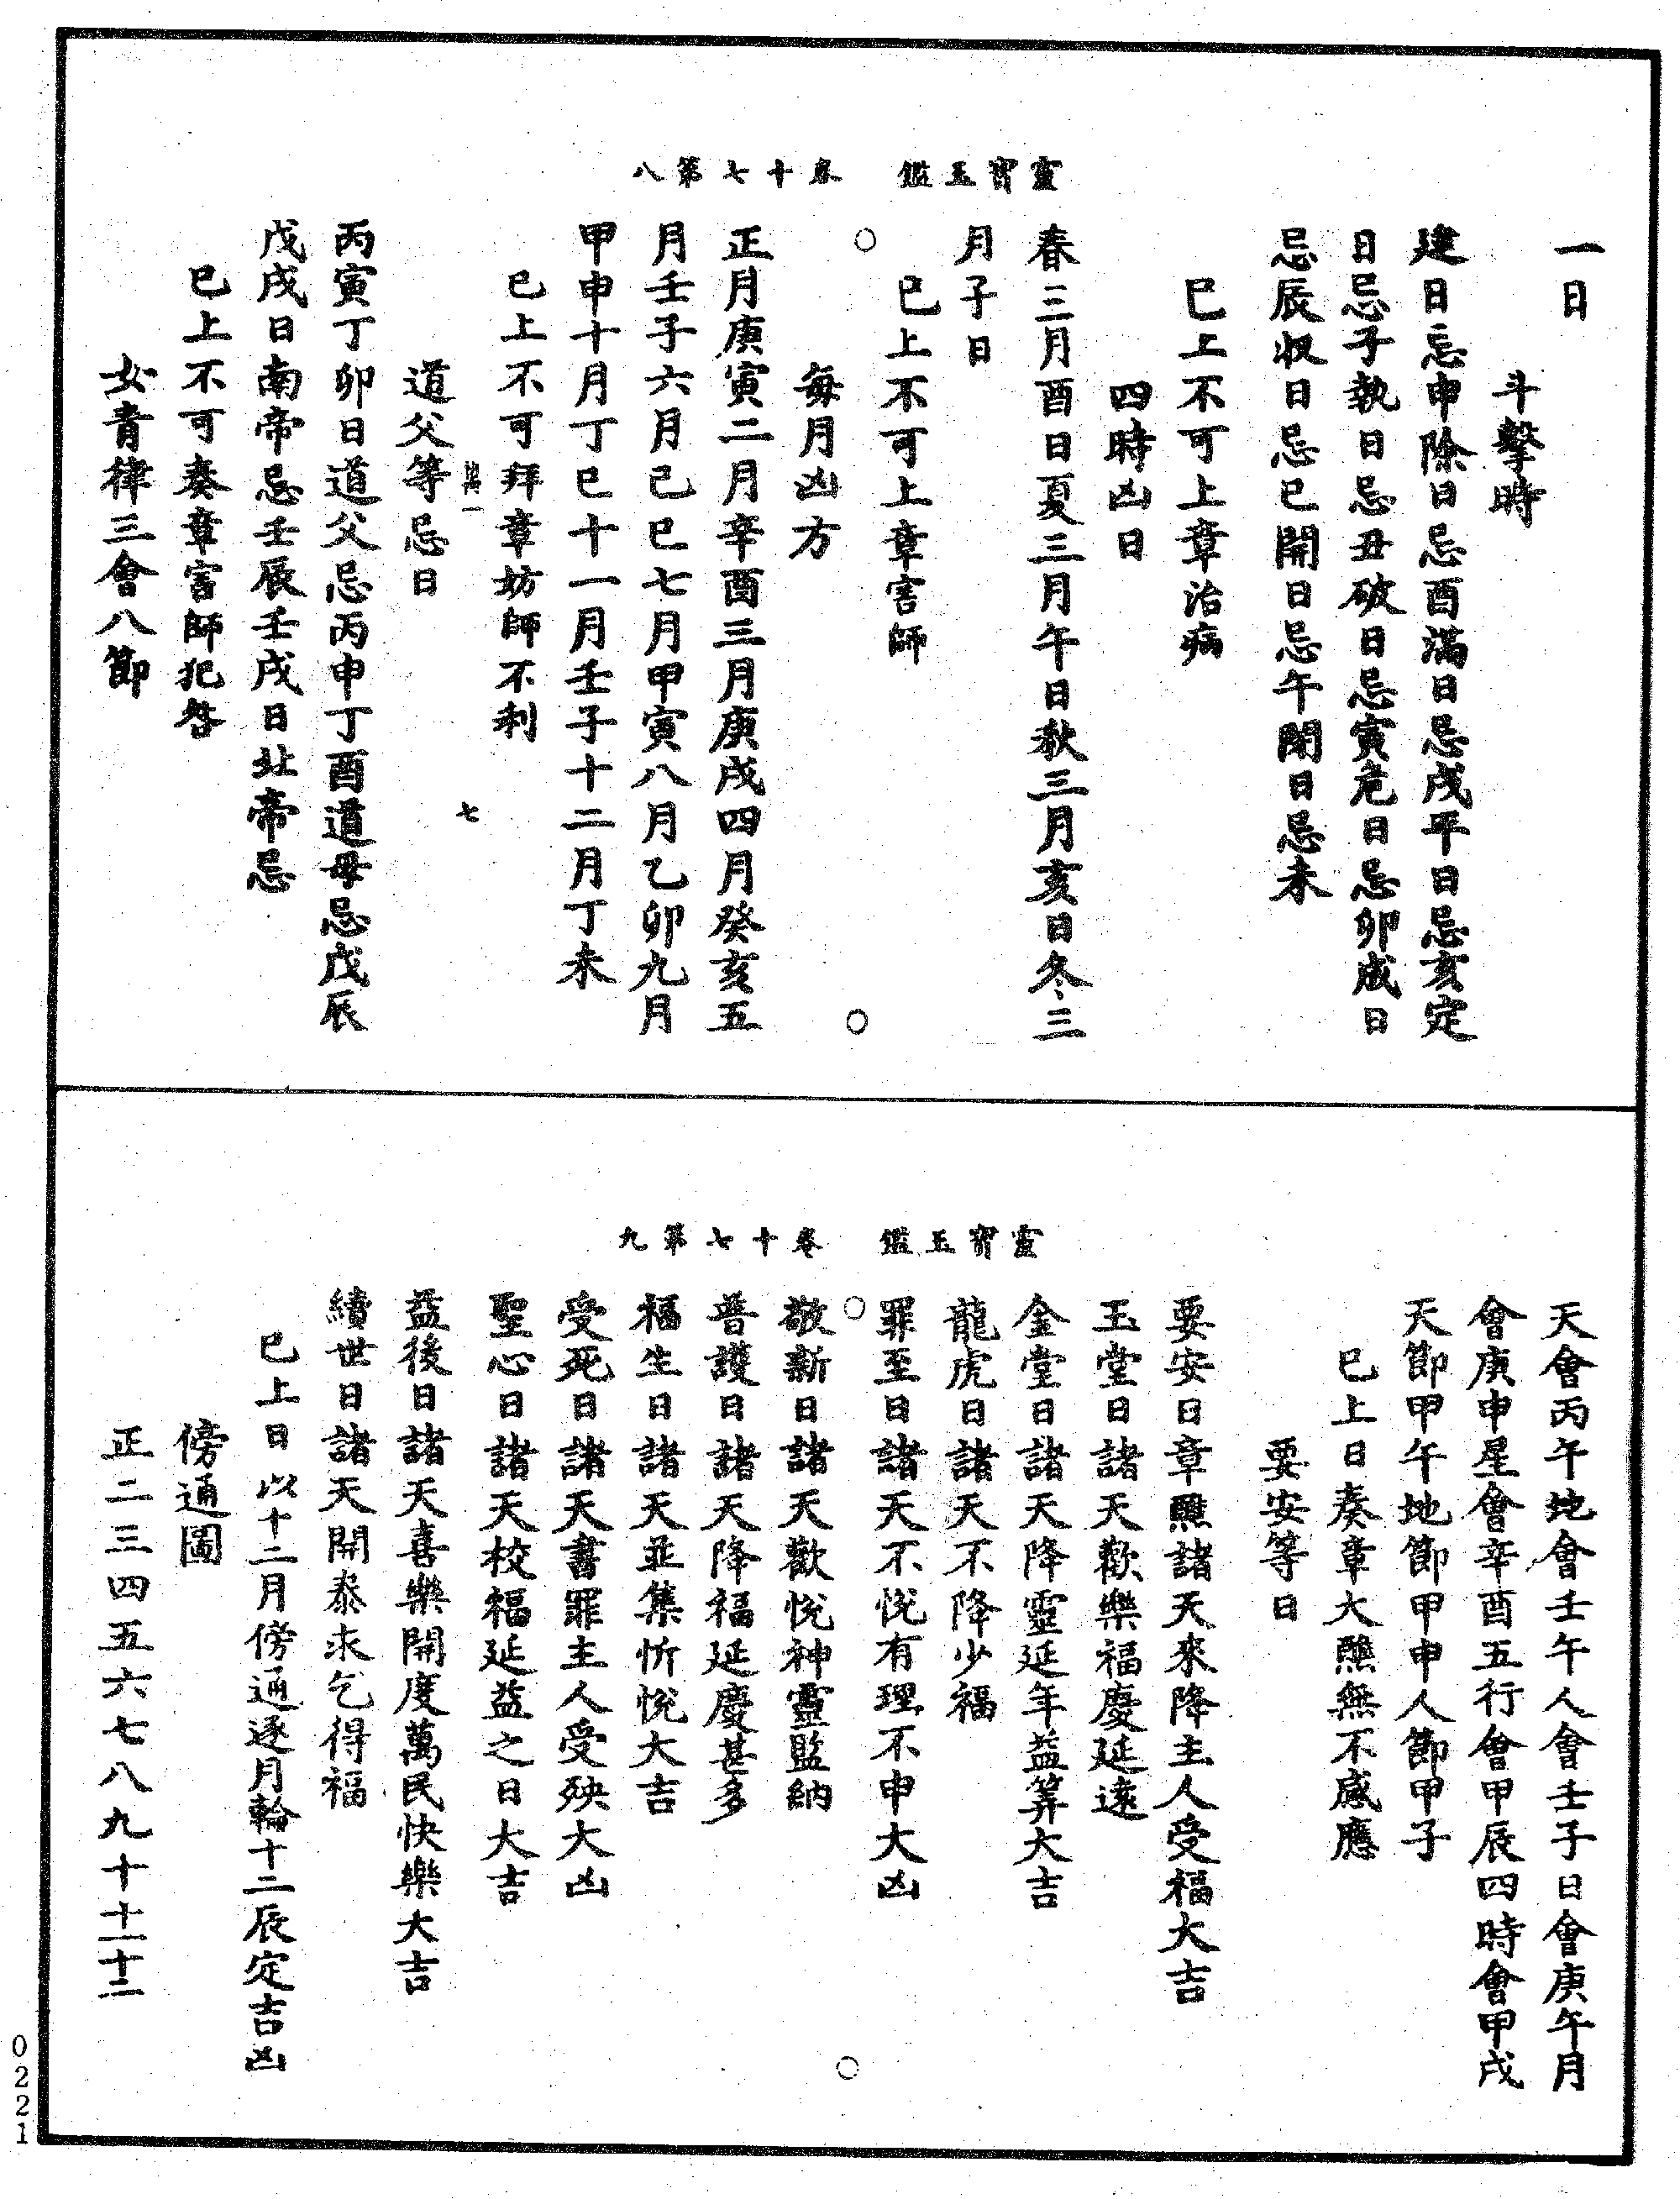 靈寶玉鑑　卷十七第八
一日
斗擊時
建日忌申除日忌酉滿日忌戌平日忌亥定
日忌子執日忌丑破日忌寅危日忌卯成日
忌辰收日忌巳開日忌午閉日忌未
巳上不可上章治病
四時凶日
春三月酉日夏三月午日秋三月亥日冬三
月子日
巳上不可上章害師
每月凶方
正月庚寅二月辛酉三月庚戌四月癸亥五
月壬子六月己巳七月甲寅八月乙卯九月
甲申十月丁巳十一月壬子十二月丁未
巳上不可拜章妨師不利
七
道父等忌日
丙寅丁卯日道父忌丙申丁酉道母忌戊辰
戊戌日南帝忌壬辰壬戌日北帝忌
巳上不可奏章害師犯咎
女青律三會八節
靈寶玉鑑　卷十七第九
天會丙午地會壬午人會壬子日會庚午月
會庚申星會辛酉五行會甲辰四時會甲戌
天節甲午地節甲申人節甲子
巳上日奏章大醮無不感應
要安等日
要安日章醮諸天來降主人受福大吉
玉堂日諸天歡樂福慶延遠
金堂日諸天降靈延年益筭大吉
龍虎日諸天不降少福
罪至日諸天不悅有理不申大凶
敬新日諸天歡悅神靈監納
普護日諸天降福延慶甚多
福生日諸天並集忻悅大吉
受死日諸天書罪主人受殃大凶
聖心日諸天校福延益之日大吉
益後日諸天喜樂開度萬民快樂大吉
續世日諸天開泰求乞得福
巳上日以十二月傍通逐月輪十二辰定吉凶
傍通圖
正二三四五六七八九十十一十二
0221